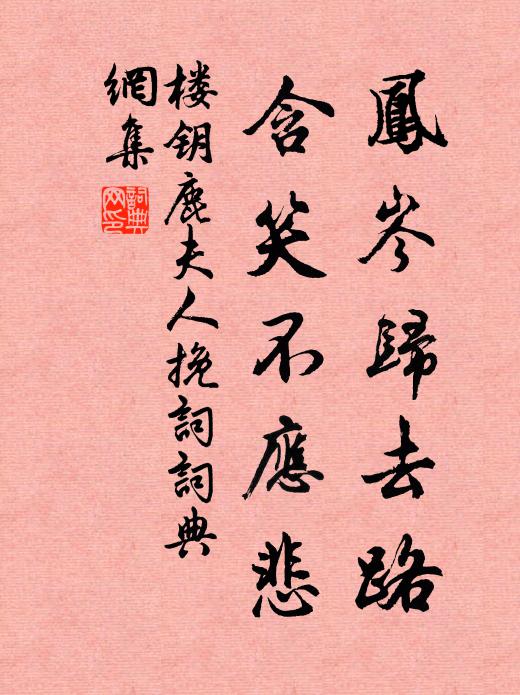 鳳岑歸去路
含笑不應悲
楼钥鹿夫人挽詞詞典
網集
詞典网印